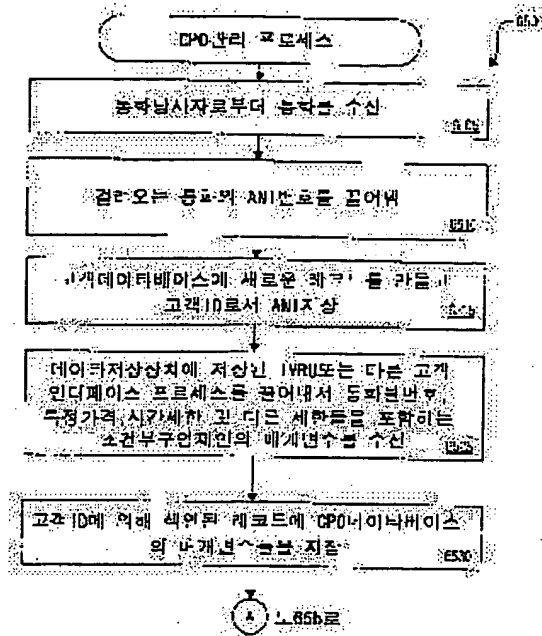 CPO관리 프로세스
통화당사자로부터 통화를 수신
걸려오는 통화의 ANI번호를 끌어냄
E510
고객데이터베이스에 새로운 레코드를 만들고
고객ID로서 ANI저장
데이터저장장치에 저장된 IVRU또는 다른 고객
인터페이스 프로세스를 끌어내서 통화된번호,
특정가격,시간제한 및 다른 제한들을 포함하는
조건부구입제안의 매개변수를 수신
고객ID에 의해 색인된 레코드에 CPO데이터베이스
의 매개변수들을 저장
E530
A
도65b로